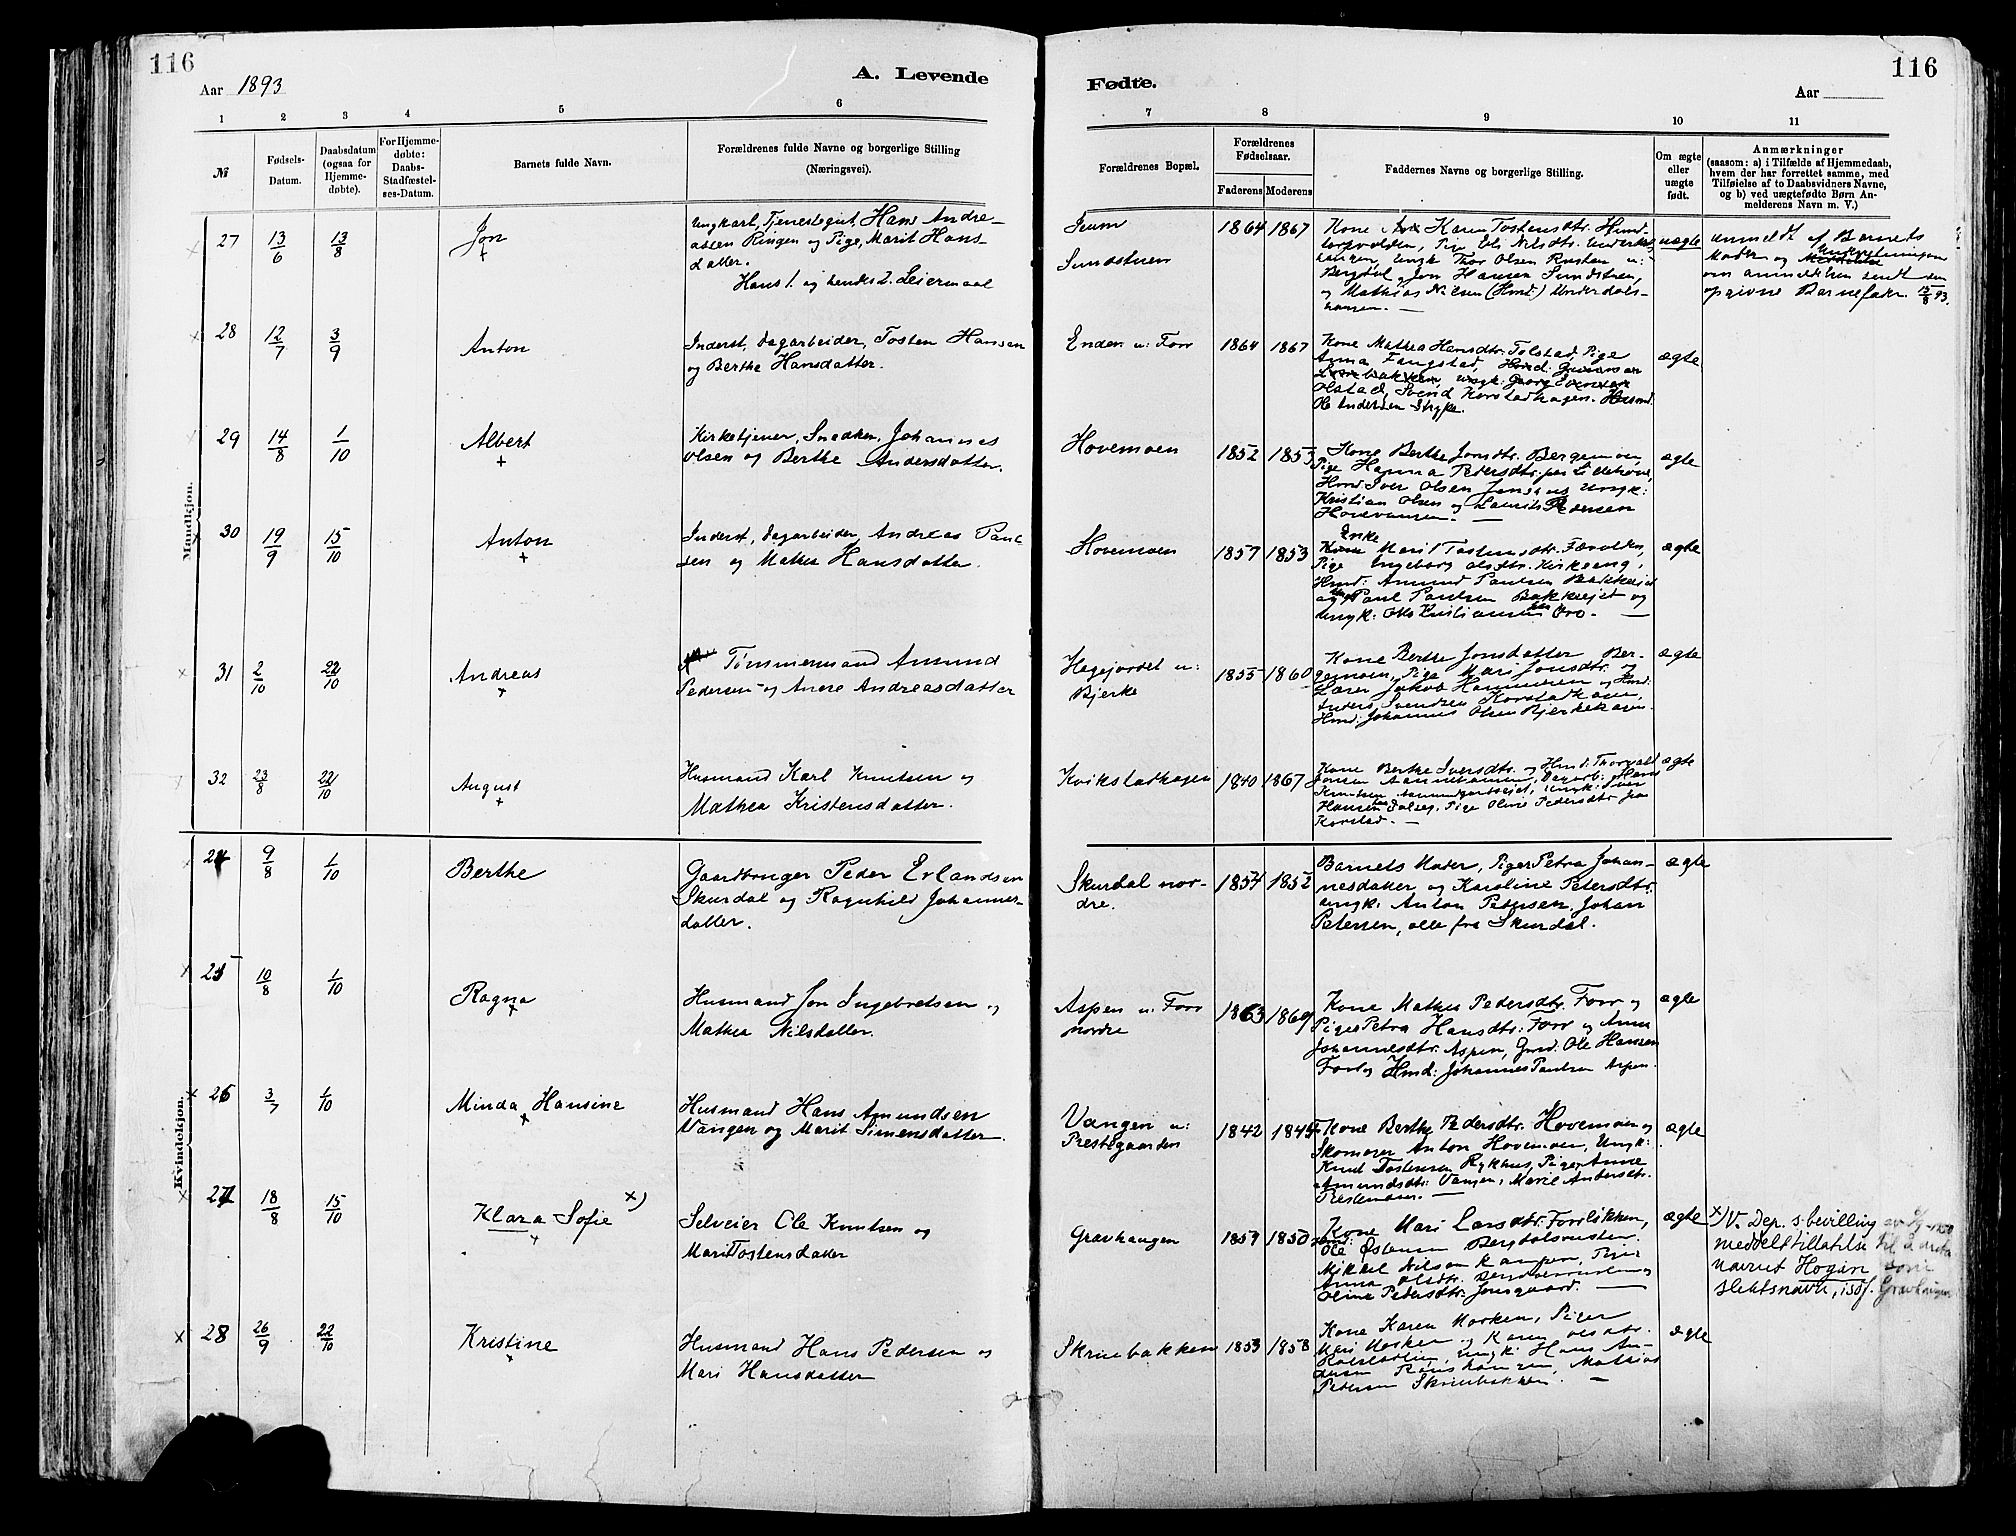 116
Aar 1893
A. Levende
1 2 3 4 5 6
№
Fødsels-
Datum.
Daabsdatum
(ogsaa for
Hjemme-
døbte).
For Hjemme-
døbte:
Daabs-
Stadfæstel-
ses-Datum.
Barnets fulde Navn.
Forældrenes fulde Navne og borgerlige Stilling
(Næringsvei).
Mandkjøn.
27 13/6 13/8 Jon
Ungkarl, Tjenestegut Hans Andre-
assen Ringen og Pige, Marit Hans-
datter.
Hans 1. og hendes 2. Leiermaal
28 12/7 3/9 Anton
Inderst, Dagarbeider, Tosten Hansen
og Berthe Hansdatter.
29 14/8 1/10 Albert
Kirketjener, Snedker, Johannes
Olsen og Berthe Andersdatter.
30 19/9 15/10 Anton
Inderst, Dagarbeider, Andreas Paul
sen og Mathea Hansdatter.
31 2/10 22/10 Andreas
Tømmermand Amund
Pedersen og Anne Andreasdatter
32 23/8 22/10 August
Husmand Karl Knutsen og
Mathea Kristensdatter.
Kvindekjøn.
24 9/8 1/10 Berthe
Gaardbruger Peder Erlandsen
Skurdal og Ragnhild Johannes-
datter.
25 10/8 1/10 Ragna
Husmand Jon Ingebretsen og
Mathea Nilsdatter.
26 3/7 1/10 Minda Hansine
Husmand Hans Amundsen
Vangen og Marit Simensdatter.
27 18/8 15/10 Klara Sofie x)
Selveier Ole Knutsen og
Mari Tostensdatter
28 26/9 22/10 Kristine
Husmand Hans Pedersen og
Mari Hansdatter
Fødte.
Aar
116
7 8 9 10 11
Forældrenes Bopæl.
Forældrenes
Fødselsaar.
Faderens Moderens
Faddernes Navne og borgerlige Stilling.
Om ægte
eller
uægte
født.
Anmærkninger
(saasom: a) i Tilfælde af Hjemmedaab,
hvem der har forrettet samme, med
Tilføielse af to Daabsvidners Navne,
og b) ved uægtefødte Børn An-
melderens Navn m. V.)
Sundstuen
1864 1867
Kone Karen Tostensdtr. Hund-
torpvolden, Pige Nilsdtr. Underdals
haugen, Ungk Thor Olsen Rusten u:
Bergdal, Jon Hansen Sundstuen,
og Mathias Nilsen (Hmd.) Underdals-
haugen.
uægte
anmeldt af Barnets
Moder og Underretningen
om anmeldelsen sendt den
opgivne Barnefader 15/8 93.
Enden u: Forr
1864 1867
Kone Mathea Hansdtr. Tolstad, Pige
Anna Fangstad,
Olstad, Svend Korstadhagen.
Ole Andersen Stryke.
ægte
Hovemoen
1852 1853
Kone Berthe Jonsdtr. Bergemoen,
Pige Hanna Pedersdtr.
Hmd Iver Olsen Ungk:
Kristian Olsen og Laurits Pedersen
ægte
Hovemoen
1857 1853
Enke
Marit Tostensdtr.
Pige Ingeborg Olsdtr. Kirkeeng,
Hmd: Amund Paulsen Bakkeejet
Paul Paulsen Bakkeejet og
Ungk: Otto Kristiansen
ægte
Hegejordet u:
Bjerke
1855 1860
Kone Berthe Jonsdatter Ber-
gemoen, Pige Mari Jonsdtr. og
Lærer Jakob Hammeren og Hmd:
Anders Svendsen Korstadhagen,
Hmd: Johannes Olsen Bjerkehagen.
ægte
Kvikstadhagen
1840 1867
Kone Berthe Iversdtr. og Hmd: Thorvald
Jonsen Dagarb: Hans
Knutsen Ungk: Iver
Hansen Pige Oline Pedersdtr. fra
Korstad.
ægte
Skurdal nor-
dre.
1854 1852
Barnets Moder, Piger Petra Johan-
nesdatter og Karoline Petersdtr.
Ungk: Anton Petersen, Johan
Petersen, alle fra Skurdal.
ægte
Aspen u: Forr
nordre
1863 1869
Kone Mathea Pedersdtr. Forr og
Piger Petra Hansdtr. Forr og Anna
Johannesdtr. Aspen, Gmd: Ole Hansen
Forr og Hmd: Johannes Paulsen Aspen.
ægte
Vangen u:
Prestegaarden
1842 1845
Kone Berthe Pedersdtr. Hovemoen og
Skomager Anton Hovemoen, Ungk:
Knud Tostensen Rykhus, Piger Anne
Amundsdtr. Vangen, Marie Andersdtr.
Prestemoen.
ægte
Gravhaugen
1857 1850
Kone Mari Larsdtr. Forrlikken,
Ole Østensen Bergdalsrusten.
Mikkel Nilsen Kampen, Piger
Anna Olsdtr.
Oline Pedersdtr. Jonsgaard.
ægte
x) V. Dep. s. bevilling av
meddelt tillatelse til å anta
navnet Hogåen som
slektsnavn, isdf. Gravhaugen
Skriubakken
1853 1858
Kone Karen Morken, Piger
Mari Morken og Karen Olsdtr.
Ungk: Hans An-
dersen Mathias
Petersen Skriubakken.
ægte